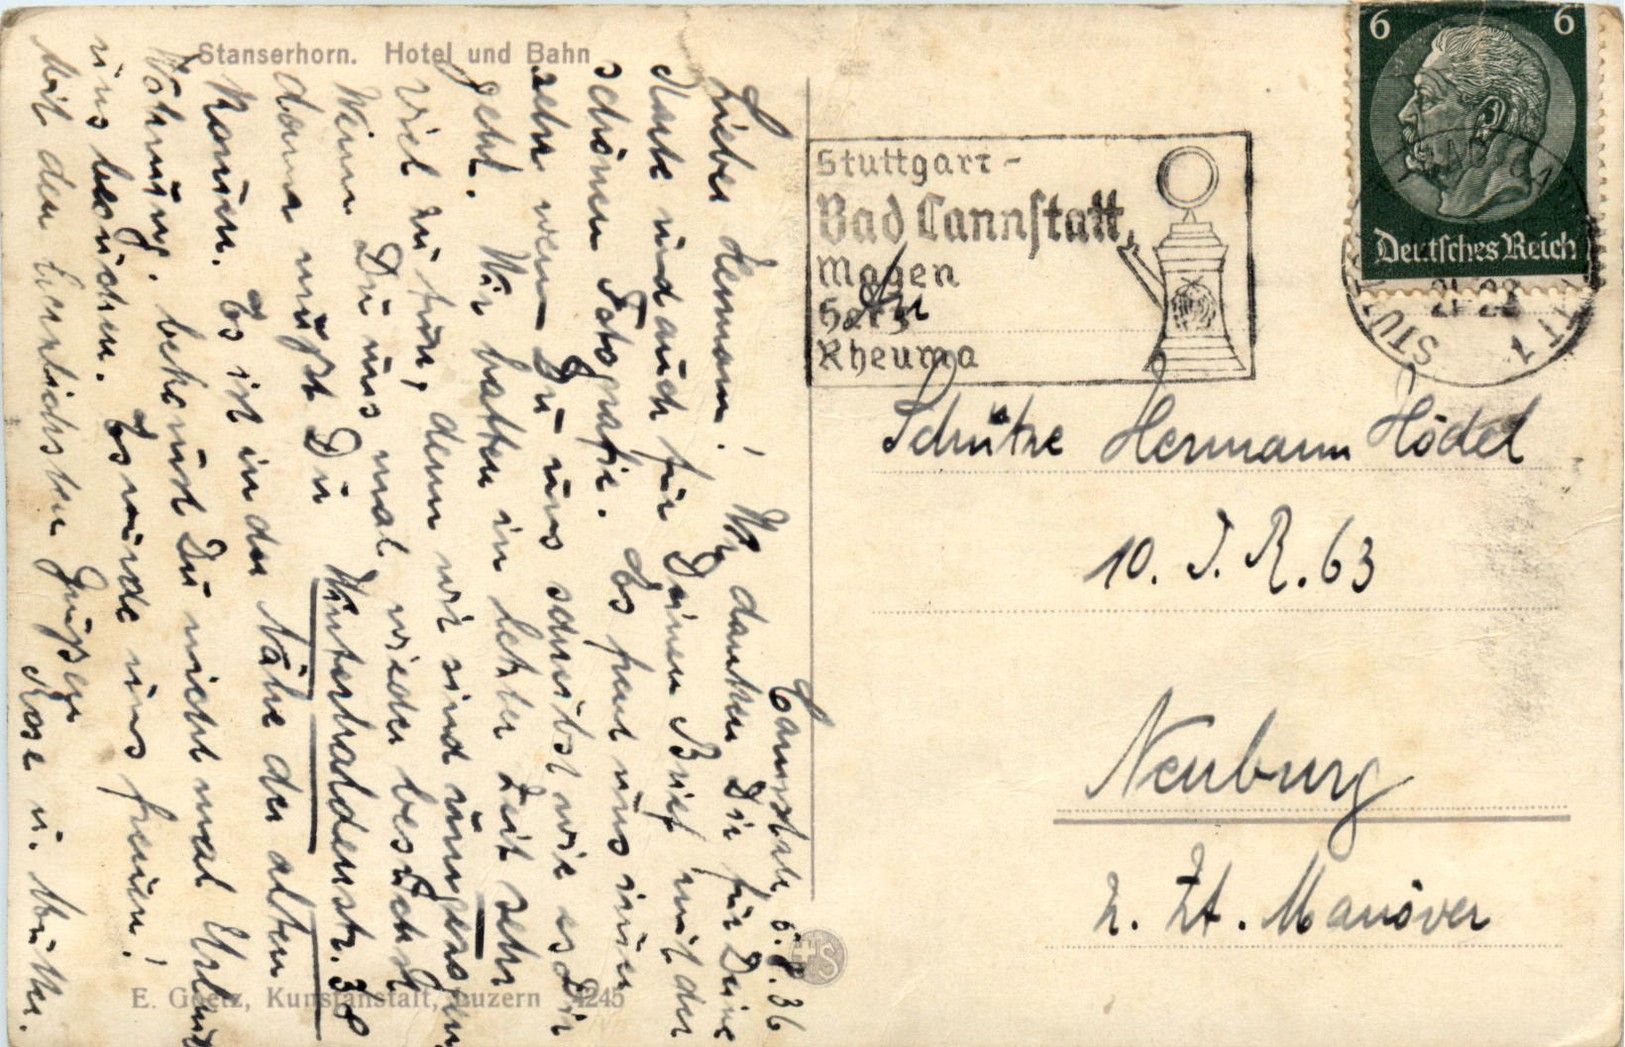 Stanserhorn. Hotel und Bahn
Cannstatt, 6.8.36
Lieber Hermann! Wir danken Dir für Deine
Karte und auch für Deinen Brief mit der
schönen Fotografie. Es freut uns immer
sehr wenn Du uns schreibst wie es Dir
geht. Wir hatten in letzter Zeit sehr
viel zu tun, denn wir sind umgezogen
Wenn Du uns mal wieder besuchst
dann mußt Du Winterhaldenstr. 38
kommen. Es ist in der Nähe der alten
Wohnung. bekommst Du nicht mal Urlaub
uns besuchen. Es würde uns freuen!
Mit den herzlichsten Grüßen
Rose u. Mutter.
E. Goetz, Kunstanstalt, Luzern 4245
Stuttgart-
Bad Cannstatt
Magen
Herz
Rheuma
6 6
Deutsches Reich
21-22
STU
An
Schütze Hermann Hödel
10. I. R. 63
Neuburg
z. Zt. Manöver